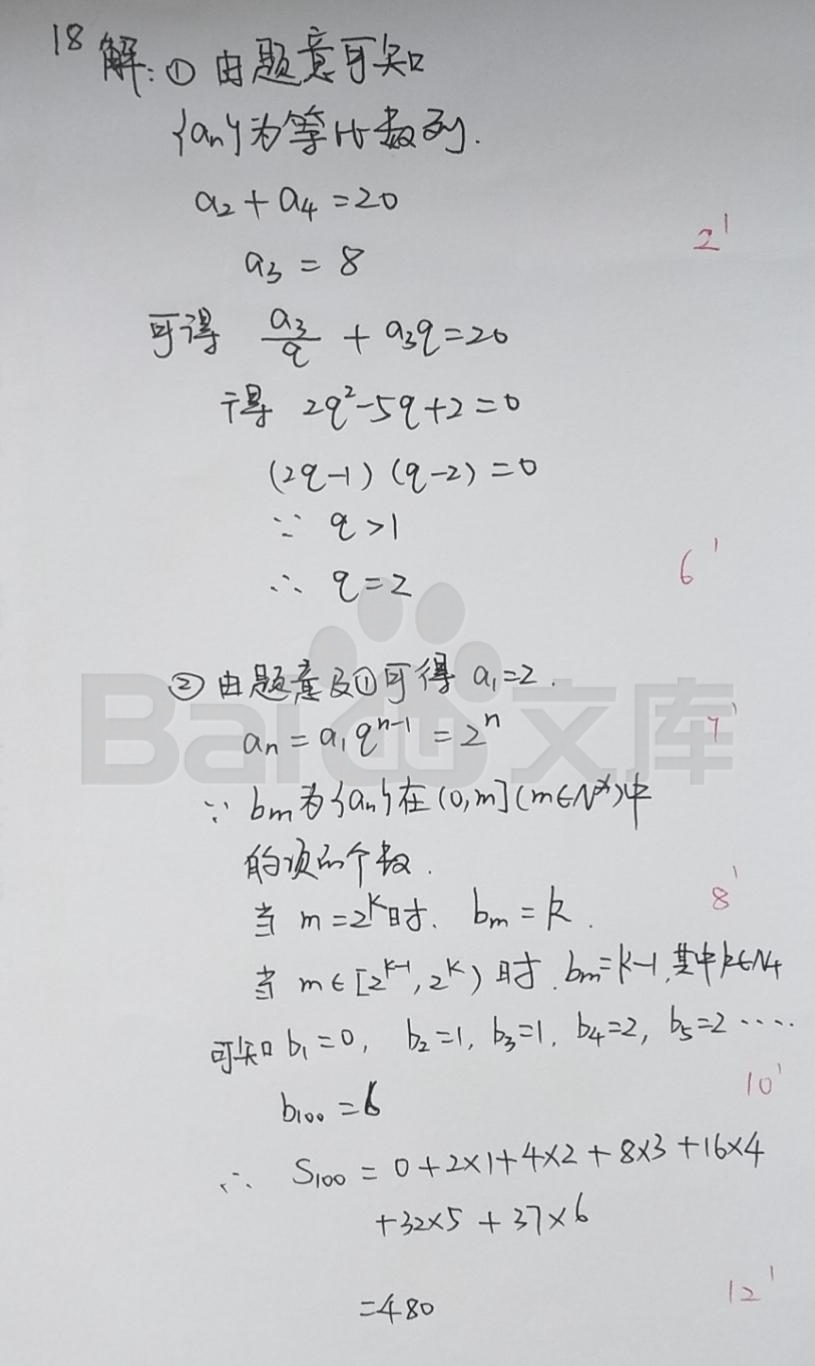 18 解:① 由题意可知
{aₙ}为等比数列.
a₂+a₄=20
2'
a₃=8
可得 a₃/q + a₃q=20
得 2q²-5q+2=0
(2q-1)(q-2)=0
∵ q>1
∴ q=2
6'
② 由题意及①可得 a₁=2.
aₙ=a₁qⁿ⁻¹=2ⁿ
7'
∵ bₘ为{aₙ}在(0,m](m∈N*)中
的项的个数.
8'
当 m=2ᵏ时. bₘ=k.
当 m∈[2ᵏ⁻¹,2ᵏ) 时.bₘ=k-1,其中k∈N₊
可知 b₁=0, b₂=1, b₃=1, b₄=2, b₅=2 ····.
10'
b₁₀₀=6
∴ S₁₀₀=0+2×1+4×2+8×3+16×4
+32×5+37×6
=480
12'
Baidu文库